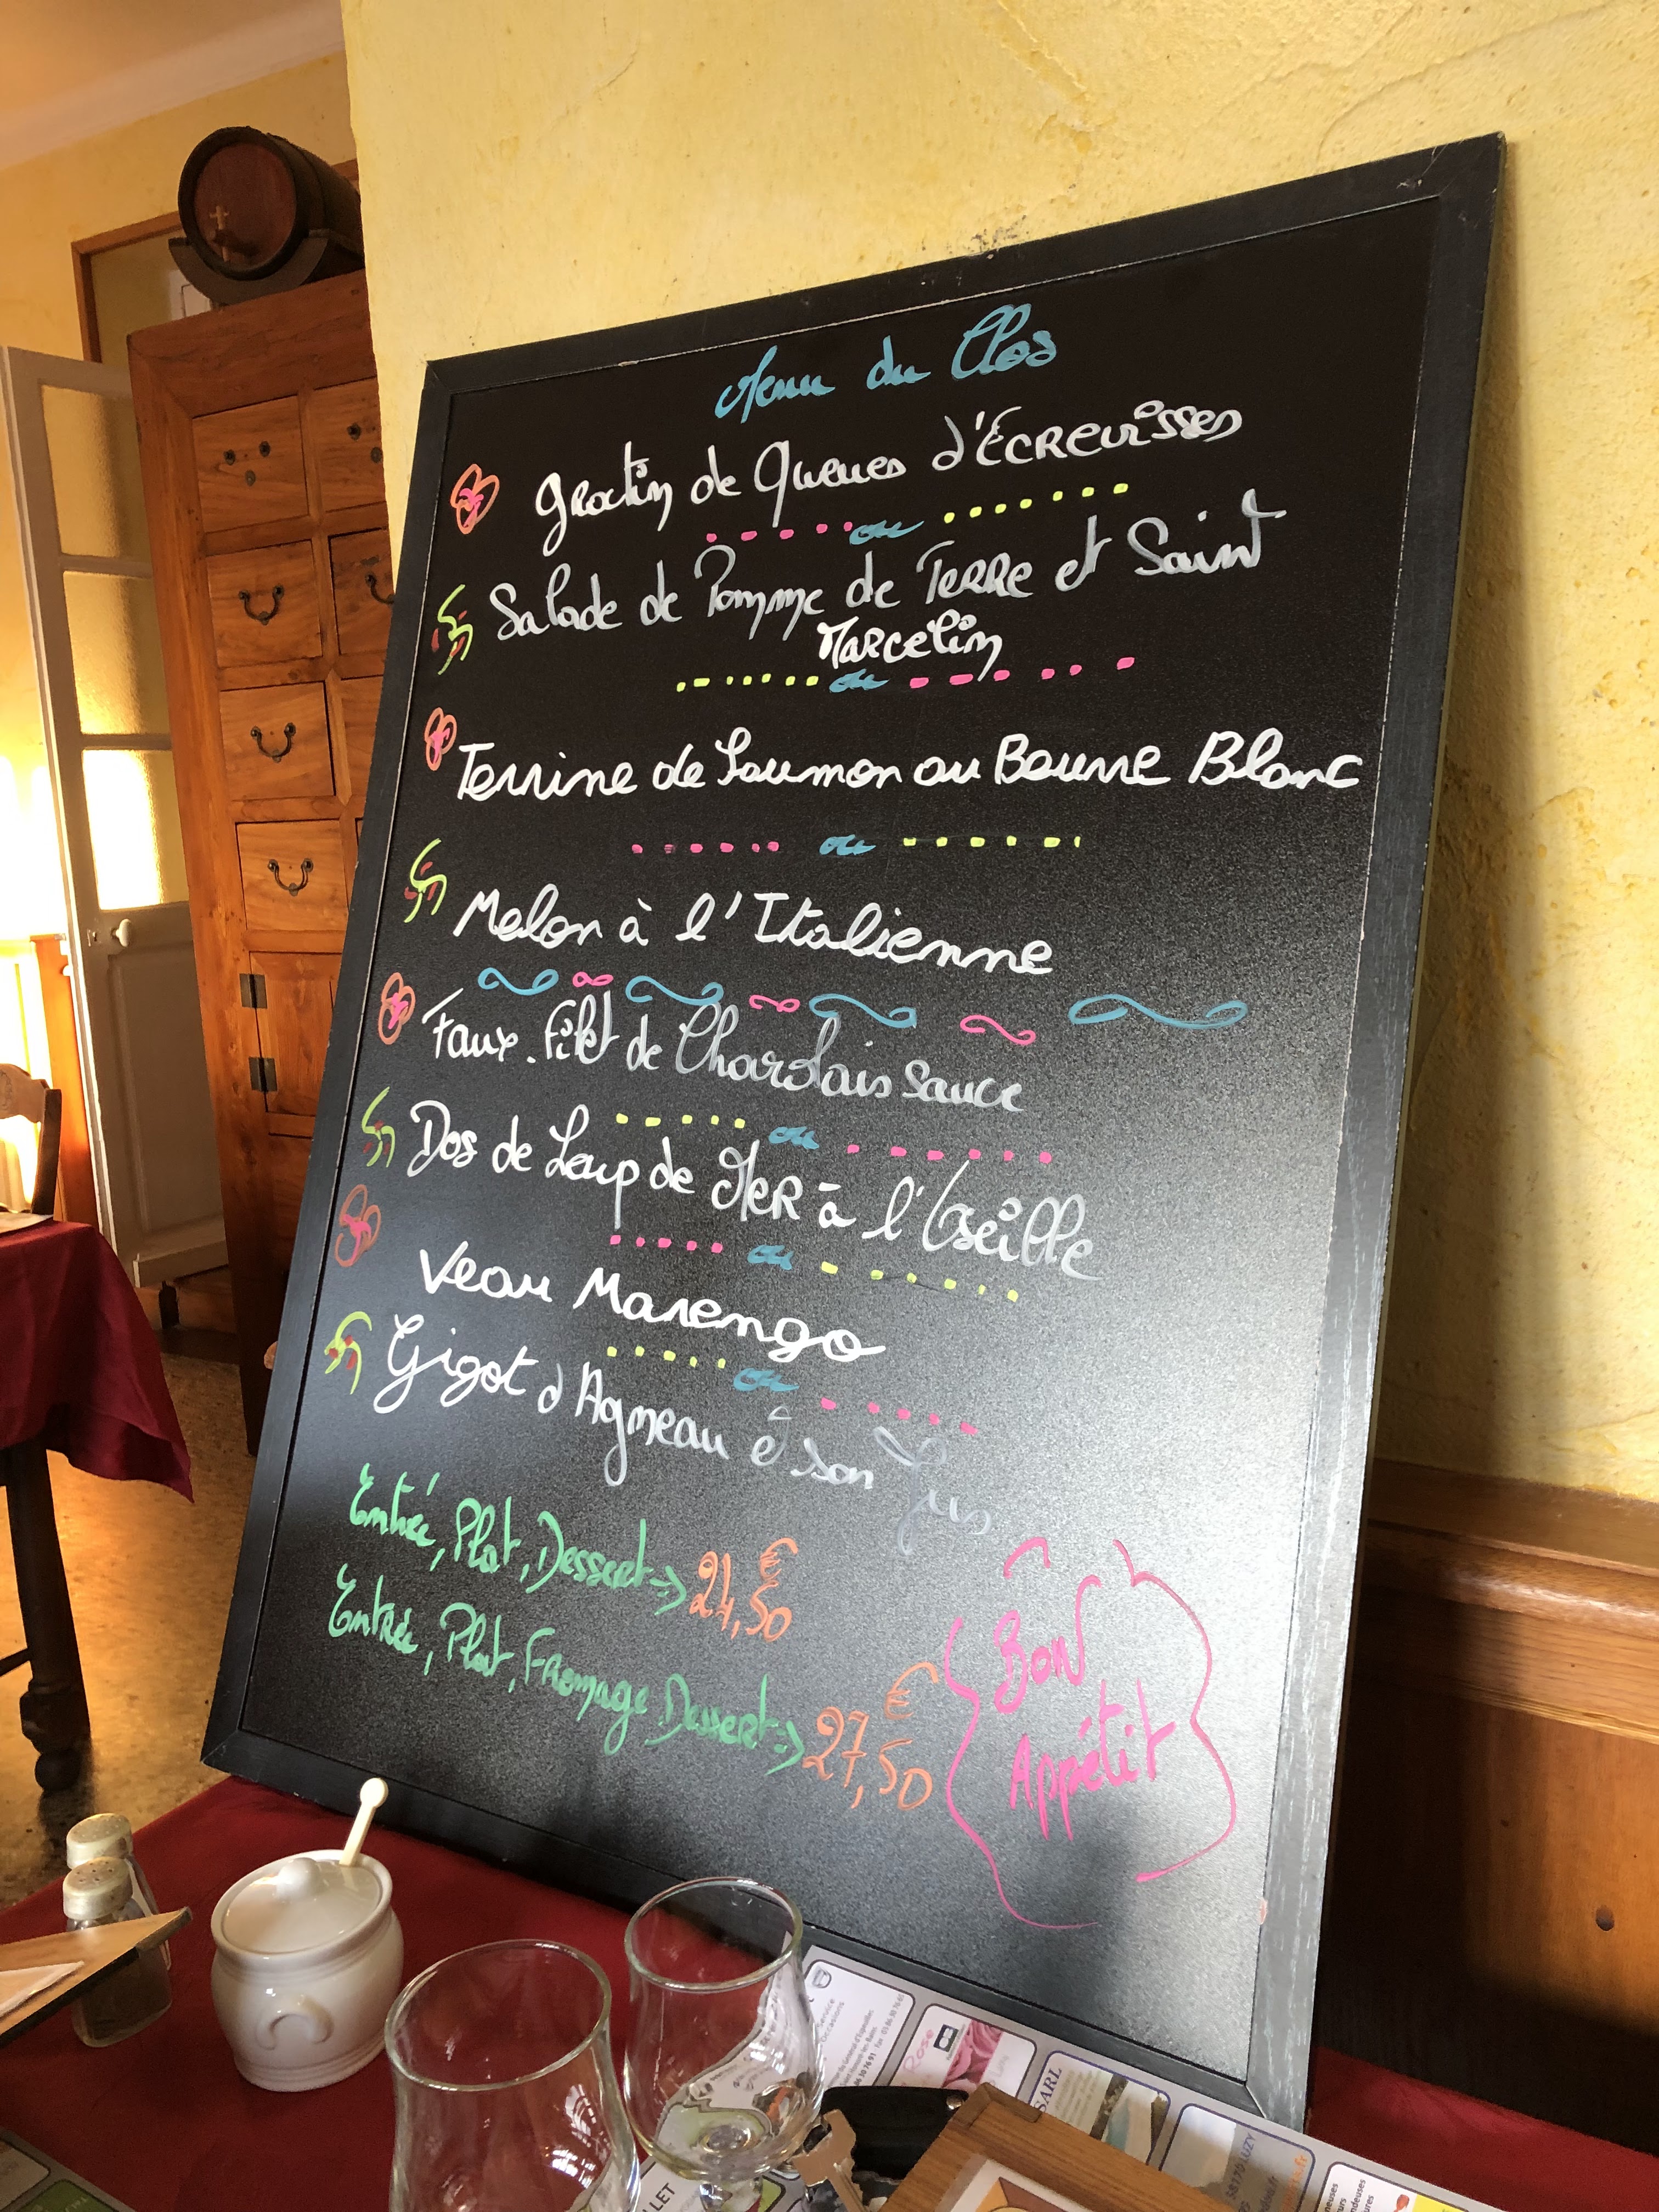 Menu du Clos
Gratin de Queues d'Écrevisses
ou
Salade de Pomme de Terre et Saint
Marcelin
ou
Terrine de Saumon au Beurre Blanc
ou
Melon à l'Italienne
Faux-filet de Charolais Sauce
ou
Dos de Loup de Mer à l'Oseille
ou
Veau Marengo
ou
Gigot d'Agneau é son Jus
Entrée, Plat, Dessert → 24,50 €
Entrée, Plat, Fromage Dessert → 27,50 €
Bon
Appétit
Rose
SARL
58170 LUZY